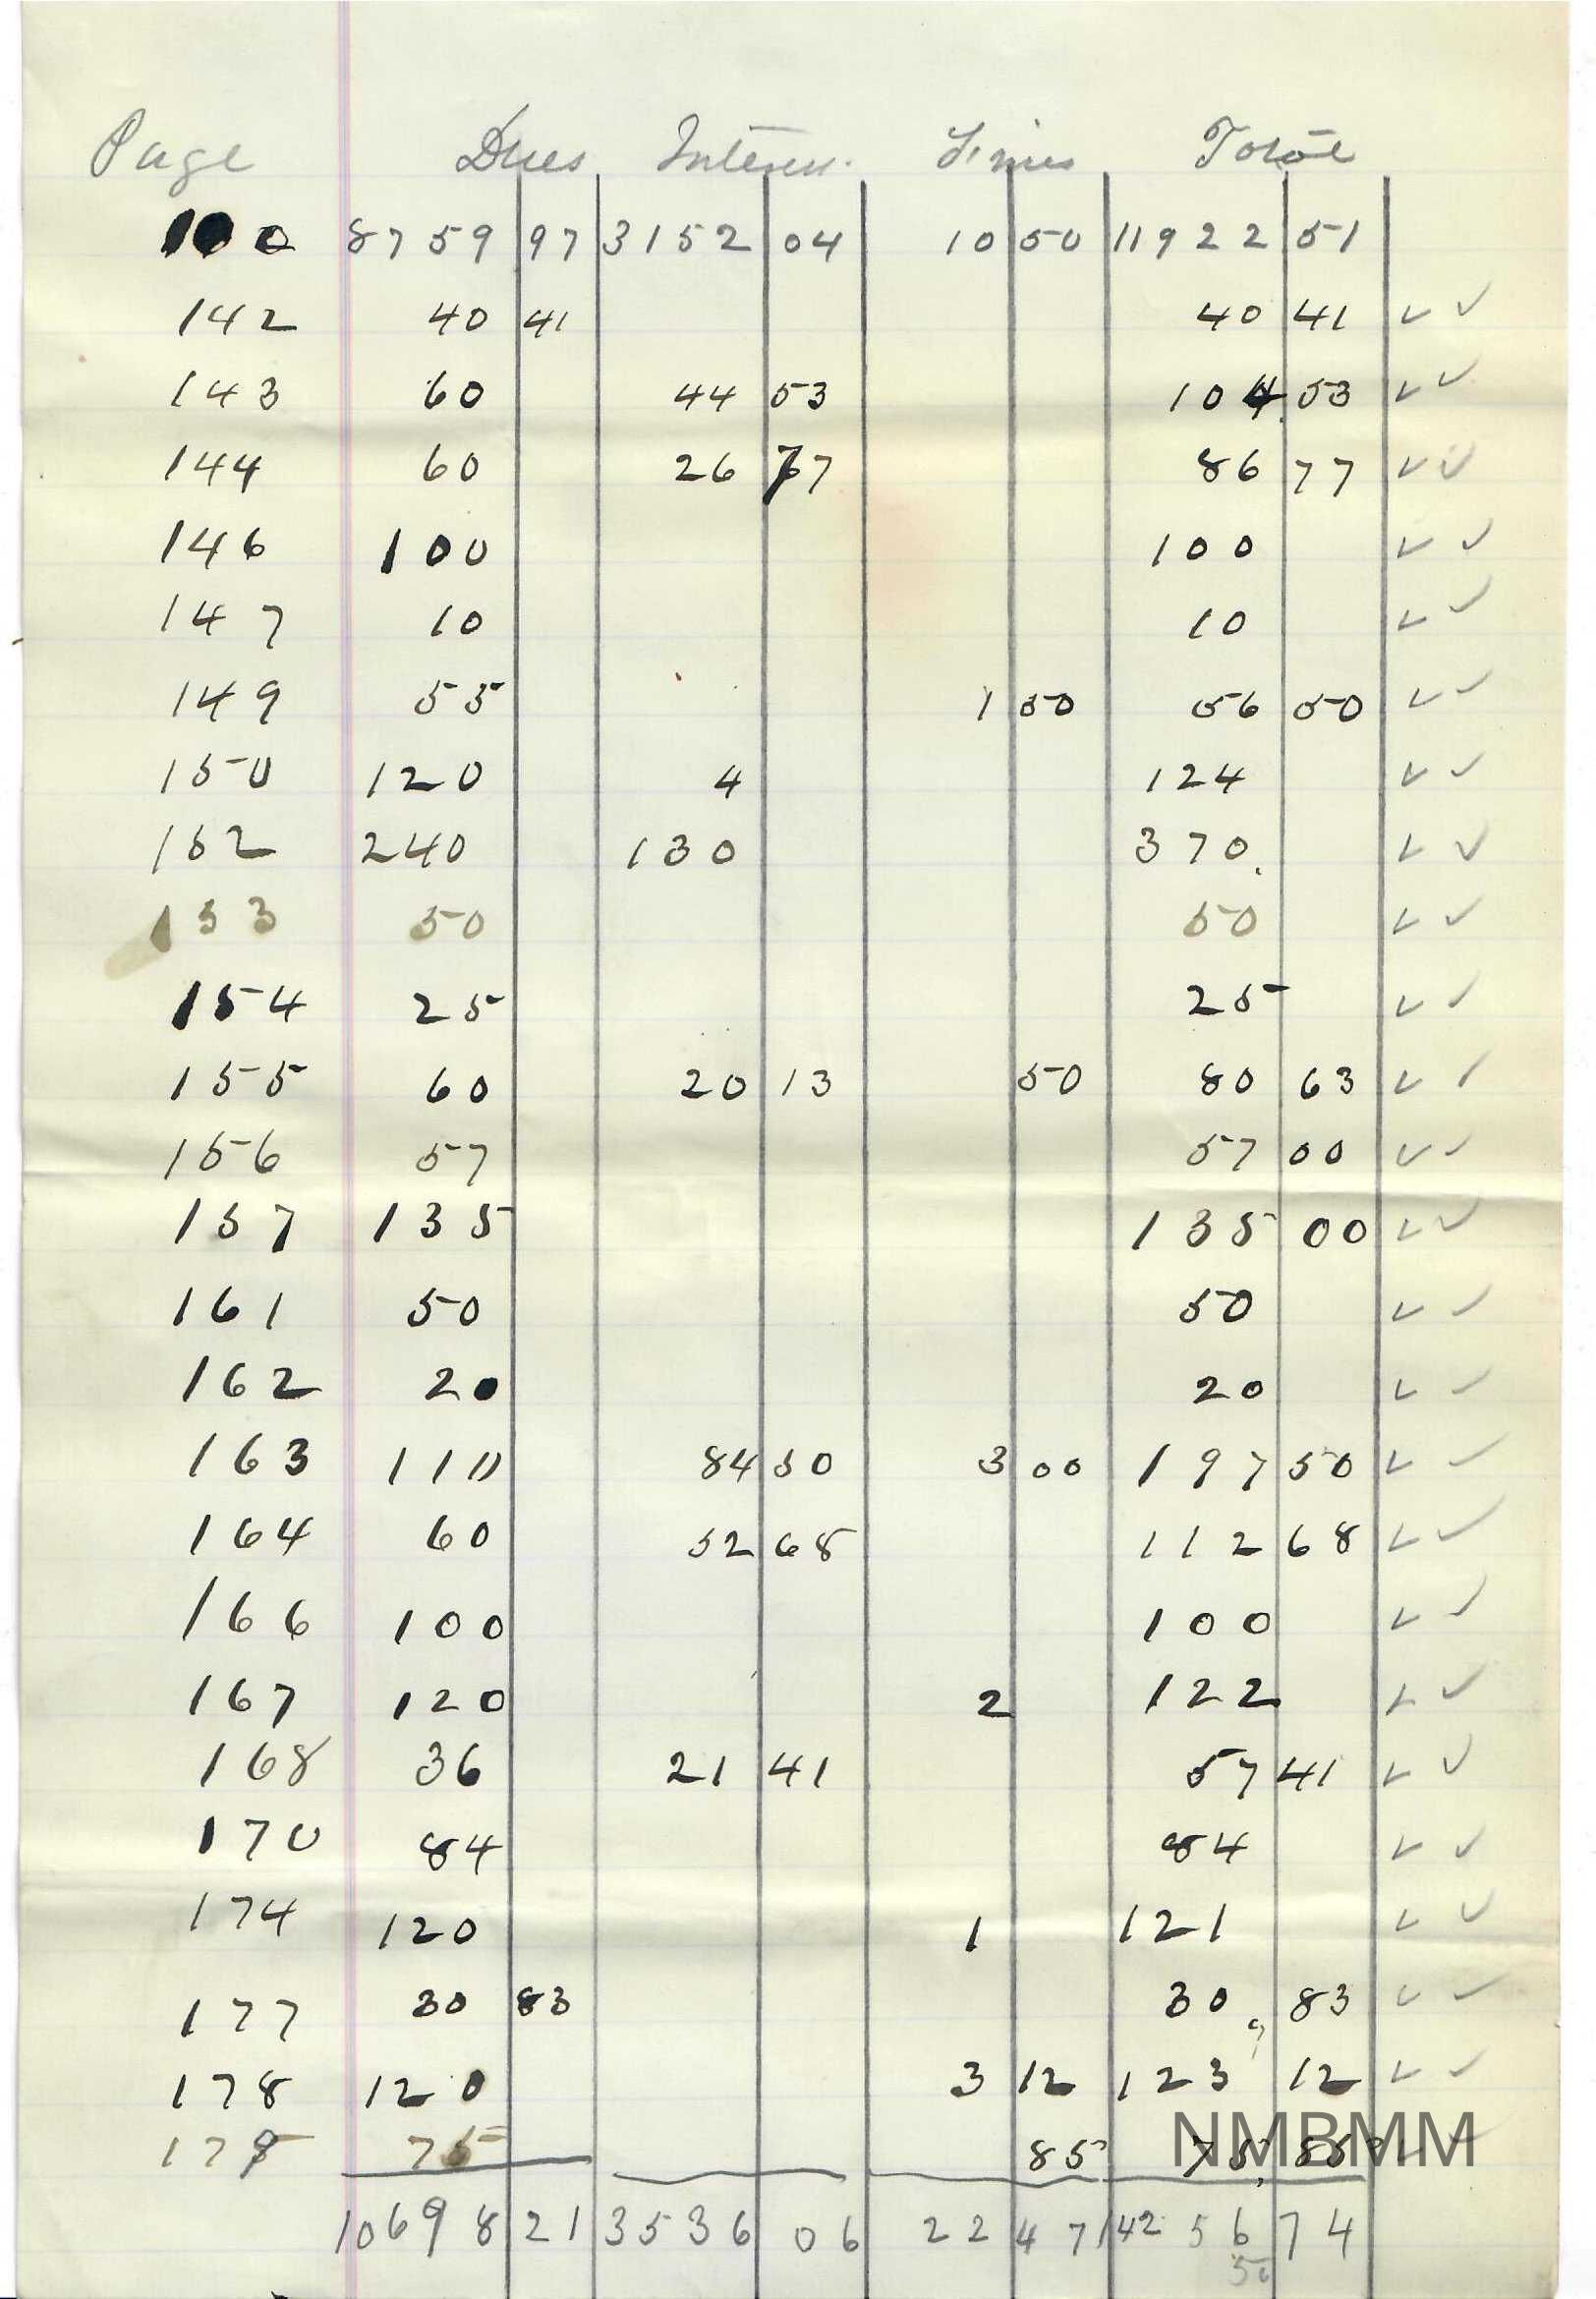 Page Dues Interest Fines Total
100 8759 97 3152 04 10 50 11922 51
142 40 41 40 41 ✓ ✓
143 60 44 53 104 53 ✓ ✓
144 60 26 77 86 77 ✓ ✓
146 100 100 ✓ ✓
147 10 10 ✓ ✓
149 55 1 50 56 50 ✓ ✓
150 120 4 124 ✓ ✓
152 240 130 370 ✓ ✓
153 50 50 ✓ ✓
154 25 25 ✓ ✓
155 60 20 13 50 80 63 ✓ ✓
156 57 57 00 ✓ ✓
157 135 135 00 ✓ ✓
161 50 50 ✓ ✓
162 20 20 ✓ ✓
163 110 84 50 3 00 197 50 ✓ ✓
164 60 52 68 112 68 ✓ ✓
166 100 100 ✓ ✓
167 120 2 122 ✓ ✓
168 36 21 41 57 41 ✓ ✓
170 84 84 ✓ ✓
174 120 1 121 ✓ ✓
177 30 83 30 83 ✓ ✓
178 120 3 12 123 12 ✓ ✓
179 75 85 75 85 ✓ ✓
NMBMM
10698 21 3536 06 22 47 14256 74